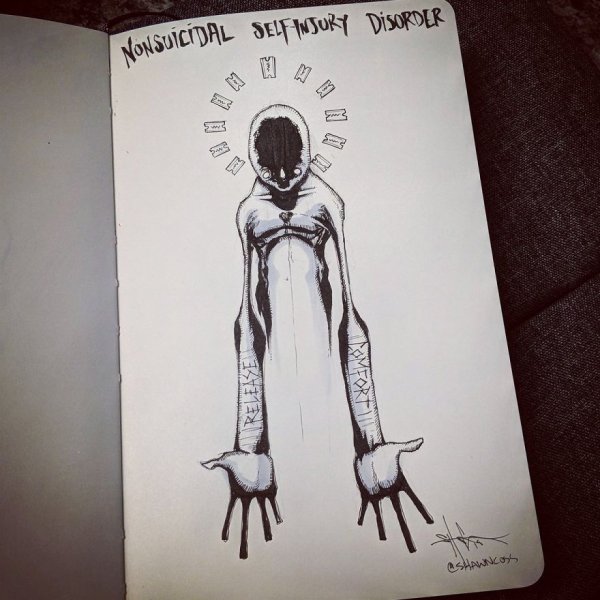 NONSUICIDAL SELF-INJURY DISORDER
RELEASE
COMFORT
@SHAWNCOSS